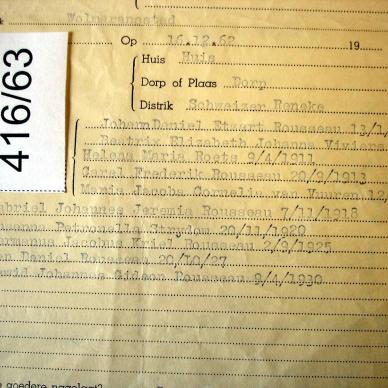 k Wolmaransstad
Op 16.12.62 19
416/63
Huis Huis
Dorp of Plaas Dorp
Distrik Schweizer Reneke
Johan Daniel Rousseau
Beatrix Elizabeth Johanna
Helena Maria Roets 9/4/1911
Carel Frederik Rousseau 20/9/1911
Maria Jacoba Cornelia van Vuuren 12/
abriel Johannes Jeremia Rousseau 7/11/1918
Petronella Strydom 20/11/1920
ermanus Jacobus Kriel Rousseau 2/9/1925
an Daniel Rousseau 20/10/27
awid Johannes Rousseau 9/4/1930
goedere nagelaat?